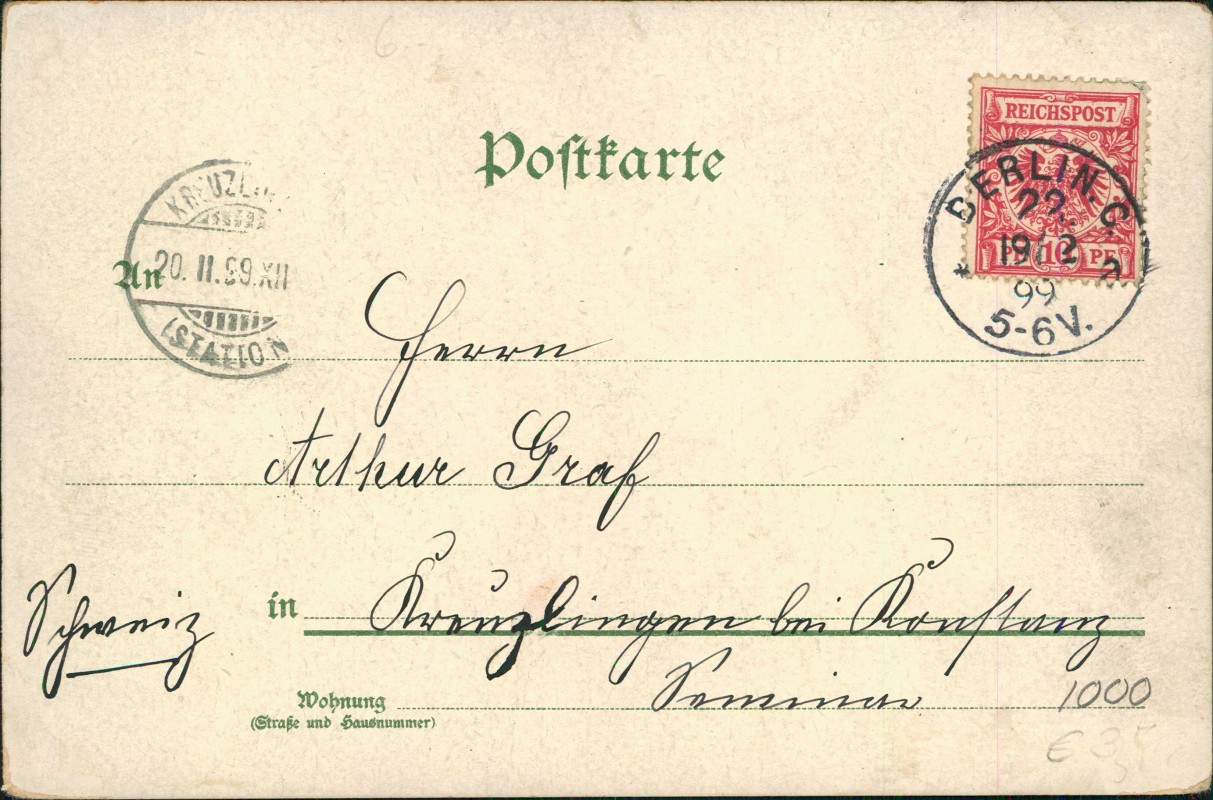 6.
REICHSPOST
BERLIN. C.
22.
19/2
99
5-6 V.
10
PF
Postkarte
KREUZLIN
20. II. 99. XII
(STATION
An
Herrn
Arthur Graf
in Kreuzlingen bei Konstanz
Schweiz
Wohnung Seminar
(Straße und Hausnummer)
1000
€ 3,5